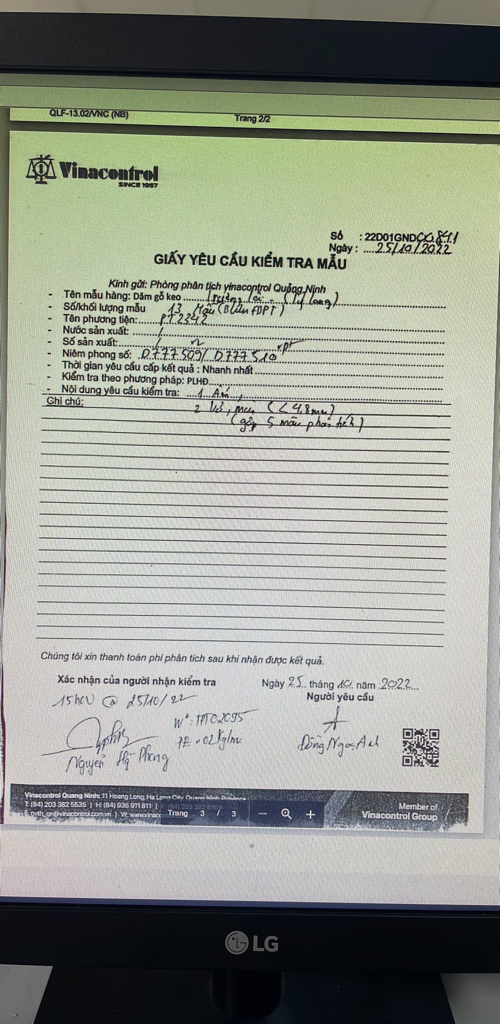 QLF-13.02/VNC (NB)
Trang 2/2
Vinacontrol
SINCE 1957
Số : 22D01GND
Ngày : 25/10/2022
GIẤY YÊU CẦU KIỂM TRA MẪU
Kính gửi: Phòng phân tích vinacontrol Quảng Ninh
- Tên mẫu hàng: Dăm gỗ keo
- Số/khối lượng mẫu 13 Mẫu
- Tên phương tiện: PT2342
- Nước sản xuất: /
- Số sản xuất:
- Niêm phong số: D777509/ D777510
- Thời gian yêu cầu cấp kết quả : Nhanh nhất
- Kiểm tra theo phương pháp: PLHĐ
- Nội dung yêu cầu kiểm tra: 1. Ẩm,
Ghi chú: 2 (< 4.8mm)
(gộp 5 mẫu phân tích)
Chúng tôi xin thanh toán phí phân tích sau khi nhận được kết quả.
Xác nhận của người nhận kiểm tra
Ngày 25 tháng 10 năm 2022
15h00 @ 25/10/22
Người yêu cầu
Nguyễn Hải Phong
Đồng Ngọc Anh
Vinacontrol Quang Ninh: 11 Hoang Long, Ha Long City, Quang Ninh Province
T: (84) 203 382 5535 | H: (84) 936 911 811 |
Trang 3 / 3 — +
Member of
Vinacontrol Group
LG